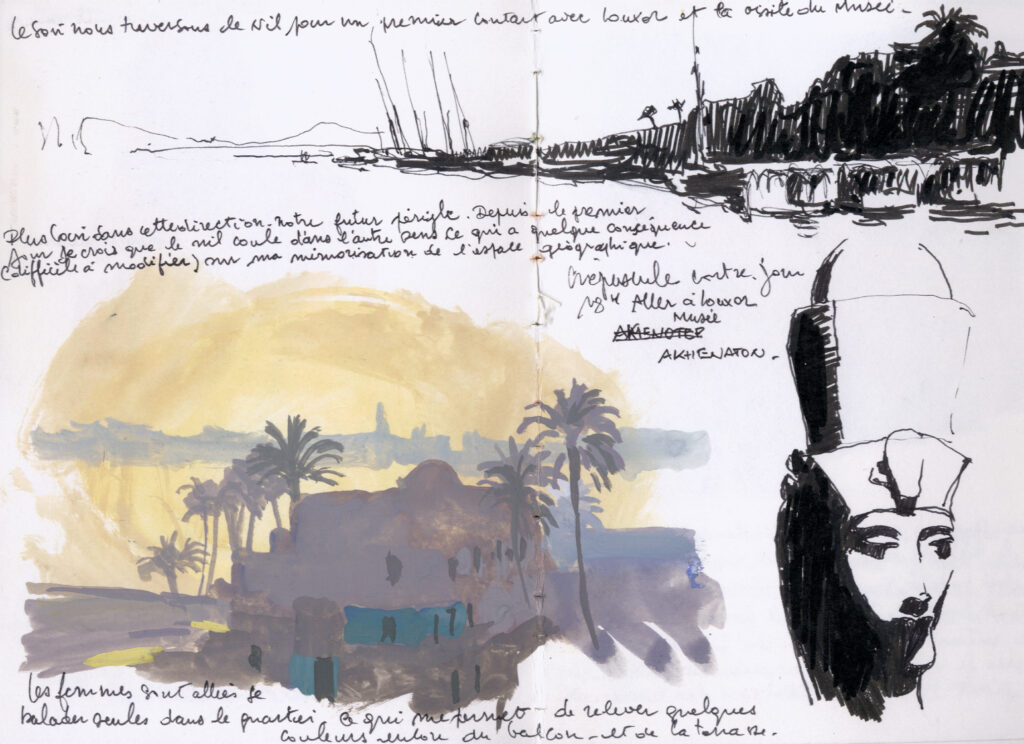 Le soir nous traversons le Nil pour un premier contact avec Louxor et la visite du Musée.
Plus loin dans cette direction, notre futur périple. Depuis le premier
jour je crois que le nil coule dans l'autre sens ce qui a quelque conséquence
(difficile à modifier) sur ma mémorisation de l'espace géographique.
Crépuscule contre-jour
18H Aller à Louxor
Musée
AKHENATON.
Les femmes sont allées se
balader seules dans le quartier, ce qui me permet de relever quelques
couleurs autour du balcon et de la terrasse.